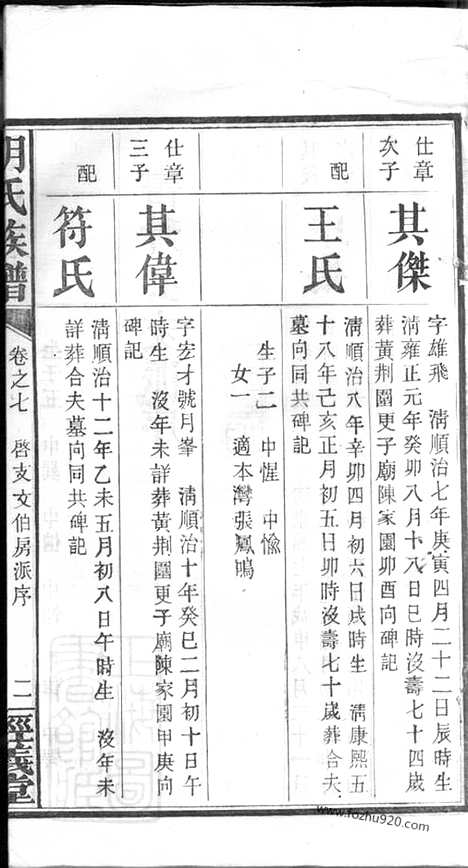 仕章
次子
其傑
字雄飛　清順治七年庚寅四月二十二日辰時生
清雍正元年癸卯八月十八日巳時沒壽七十四歲
葬黃荆園更子廟陳家園卯酉向碑記
配
王氏
清順治八年辛卯四月初六日戌時生　清康熙五
十八年己亥正月初五日卯時沒壽七十歲葬合夫
墓向同共碑記
生子二　中惺　中愉
女一　適本灣張鳳鳴
仕章
三子
其偉
字宏才號月峯　清順治十年癸巳二月初十日午
時生　沒年未詳葬黃荆園更子廟陳家園甲庚向
碑記
配
符氏
清順治十二年乙未五月初八日午時生　沒年未
詳葬合夫墓向同共碑記
氏族譜
卷之七
啓支文伯房派序
二
經義堂
www.fozhu920.com